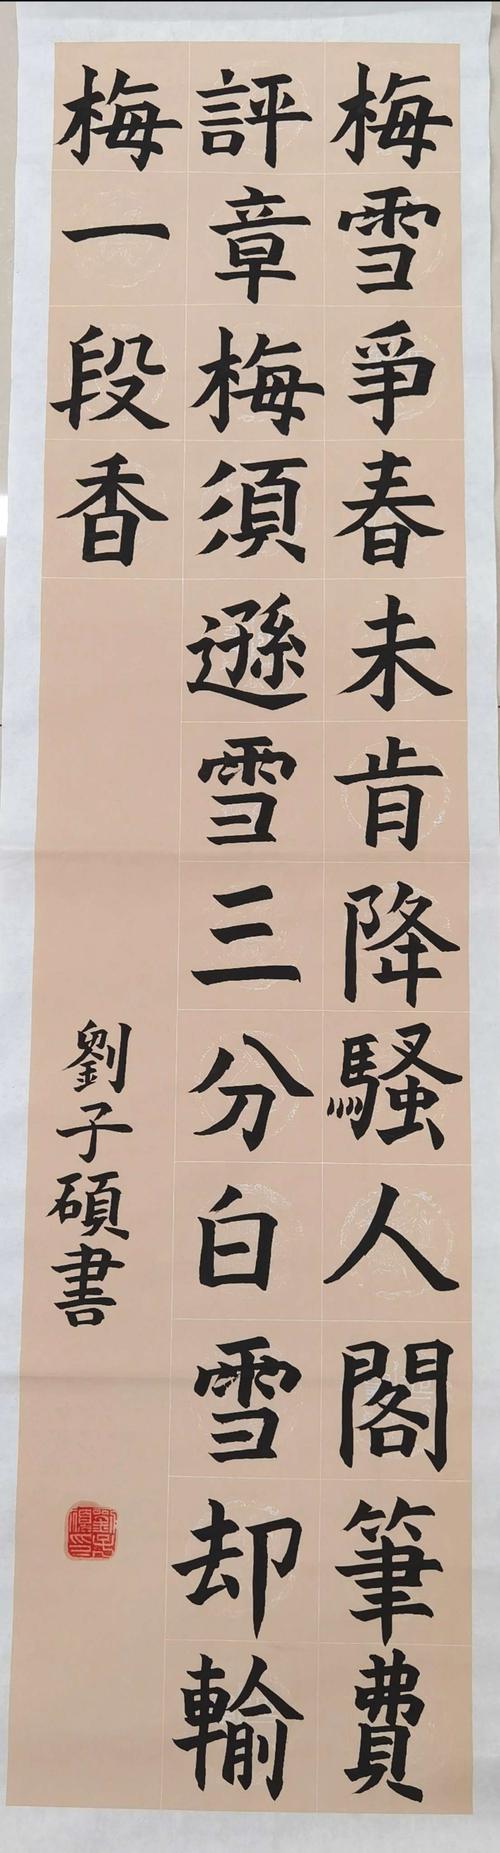 梅雪爭春未肯降騷人閣筆費
評章梅須遜雪三分白雪却輸
梅一段香
劉子碩書